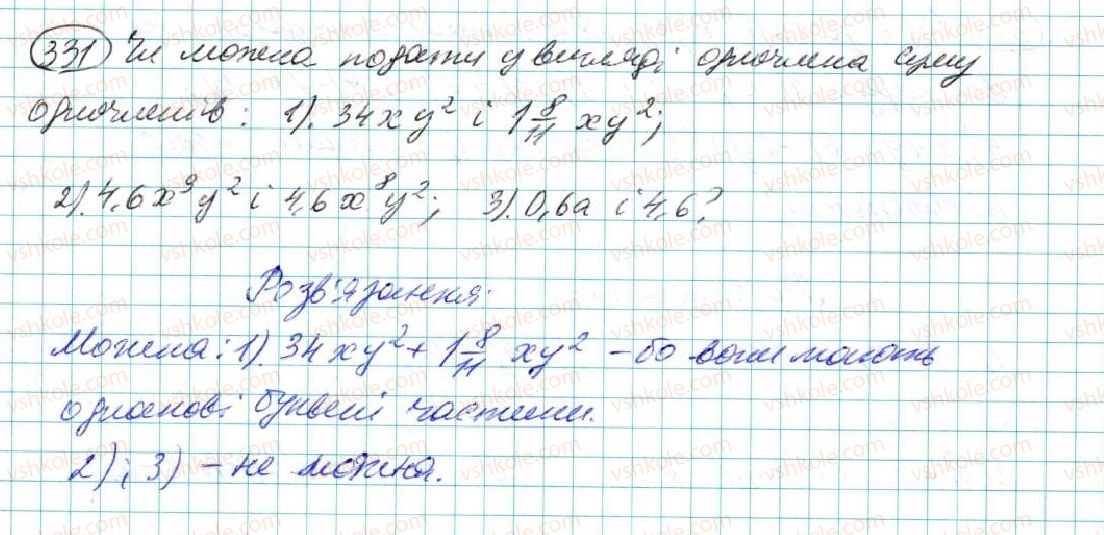 331 Чи можна подати у вигляді одночлена суму
одночленів: 1). 34xy² і 1 8/11 xy²;
2). 4,6x⁹y² і 4,6x⁸y²; 3). 0,6a і 4,6?
Розв'язання:
Можна: 1). 34xy² + 1 8/11 xy² – бо вони мають
однакові буквені частини.
2); 3) – не можна.
vshkole.com